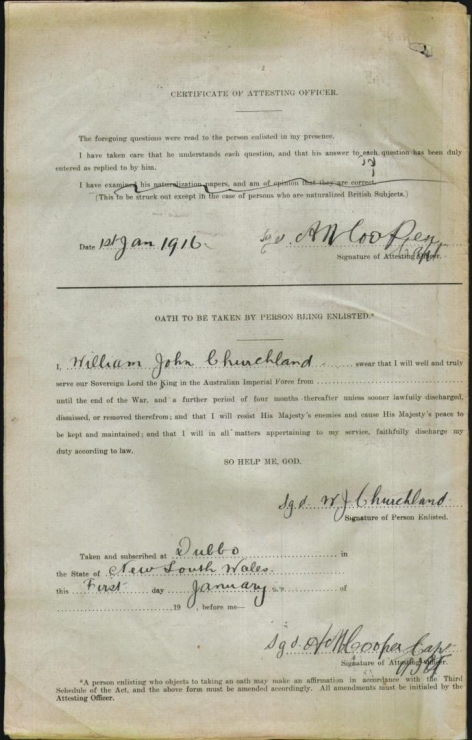 CERTIFICATE OF ATTESTING OFFICER.
The foregoing questions were read to the person enlisted in my presence.
I have taken care that he understands each question, and that his answer to each question has been duly
entered as replied to by him.
I have examined his naturalization papers, and am of opinion that they are correct.
(This to be struck out except in the case of persons who are naturalized British Subjects.)
Date 1st Jan 1916. Sgd. A N Cooper
Capt
Signature of Attesting Officer.
OATH TO BE TAKEN BY PERSON BEING ENLISTED.*
I, William John Churchland swear that I will well and truly
serve our Sovereign Lord the King in the Australian Imperial Force from
until the end of the War, and a further period of four months thereafter unless sooner lawfully discharged,
dismissed, or removed therefrom; and that I will resist His Majesty's enemies and cause His Majesty's peace to
be kept and maintained; and that I will in all matters appertaining to my service, faithfully discharge my
duty according to law.
SO HELP ME, GOD.
Sgd W J Churchland
Signature of Person Enlisted.
Taken and subscribed at Dubbo in
the State of New South Wales.
this First day January of
19 , before me—
Sgd. Cooper Capt
Signature of Attesting Officer.
*A person enlisting who objects to taking an oath may make an affirmation in accordance with the Third
Schedule of the Act, and the above form must be amended accordingly. All amendments must be initialed by the
Attesting Officer.